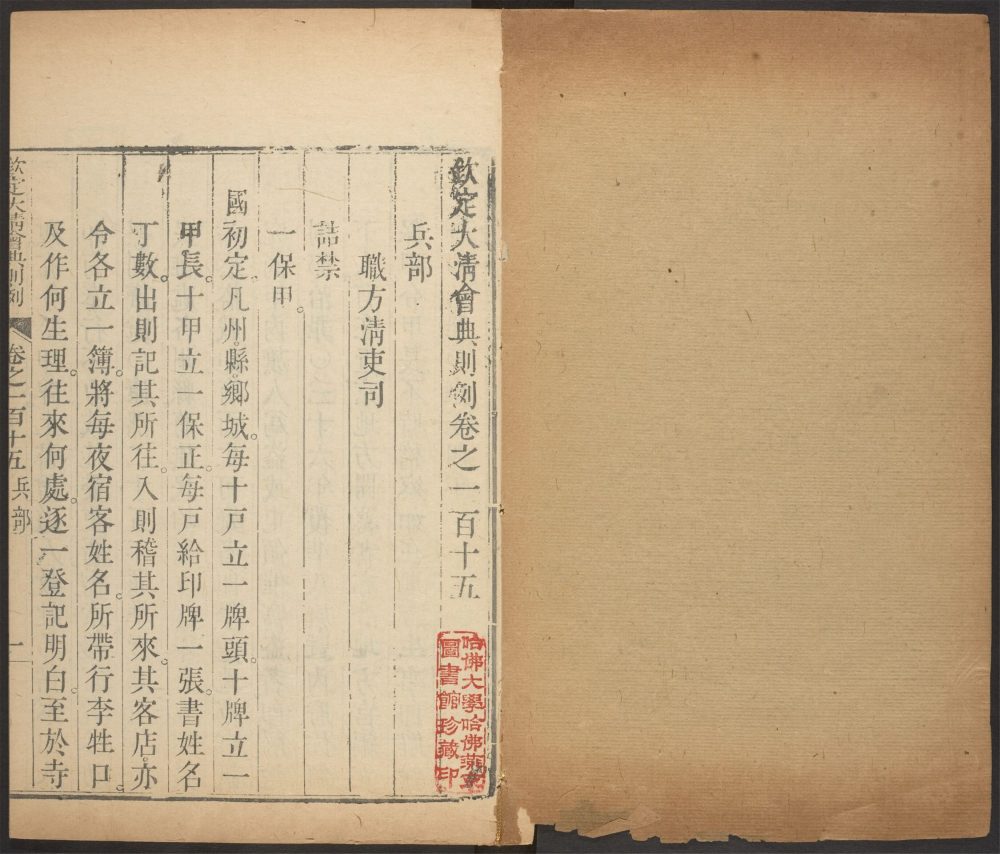 欽定大清會典則例卷之一百十五
兵部
職方清吏司
詰禁
一保甲。
國初定。凡州縣鄉城。每十戶立一牌頭。十牌立一
甲長。十甲立一保正。每戶給印牌一張。書姓名
丁數。出則記其所往。入則稽其所來。其客店。亦
令各立一簿。將每夜宿客姓名。所帶行李牲口。
及作何生理。往來何處。逐一登記明白。至於寺
欽定大清會典則例 卷之一百十五 兵部 一
哈佛大學哈佛燕京
圖書館珍藏印